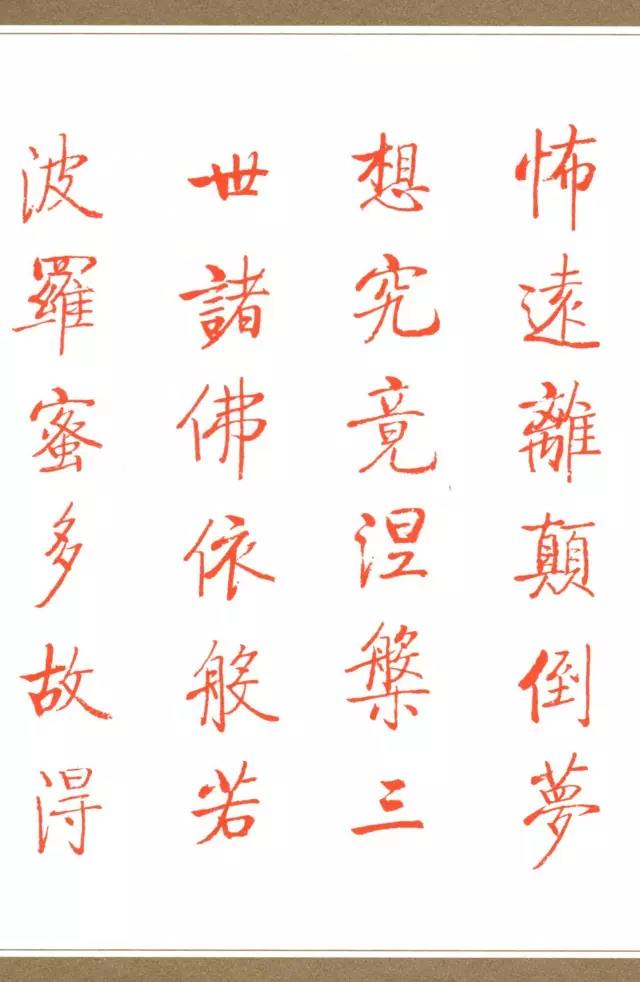 怖遠離顛倒夢
想究竟涅槃三
世諸佛依般若
波羅蜜多故得